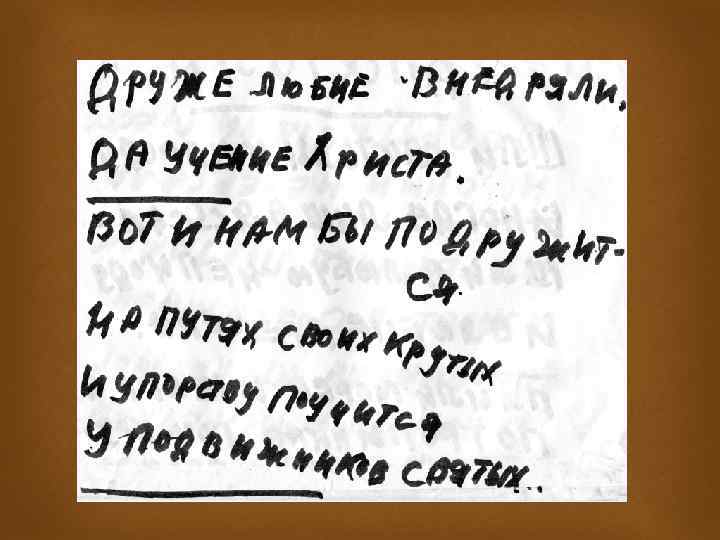 ДРУЖЕ ЛЮБИЕ ВНЕДРЯЛИ,
ДА УЧЕНИЕ ХРИСТА.
ВОТ И НАМ БЫ ПОДРУЖИТ-
СЯ
НА ПУТЯХ СВОИХ КРУТЫХ
И УПОРСТВУ ПОУЧИТСЯ
У ПОДВИЖНИКОВ СВЯТЫХ..